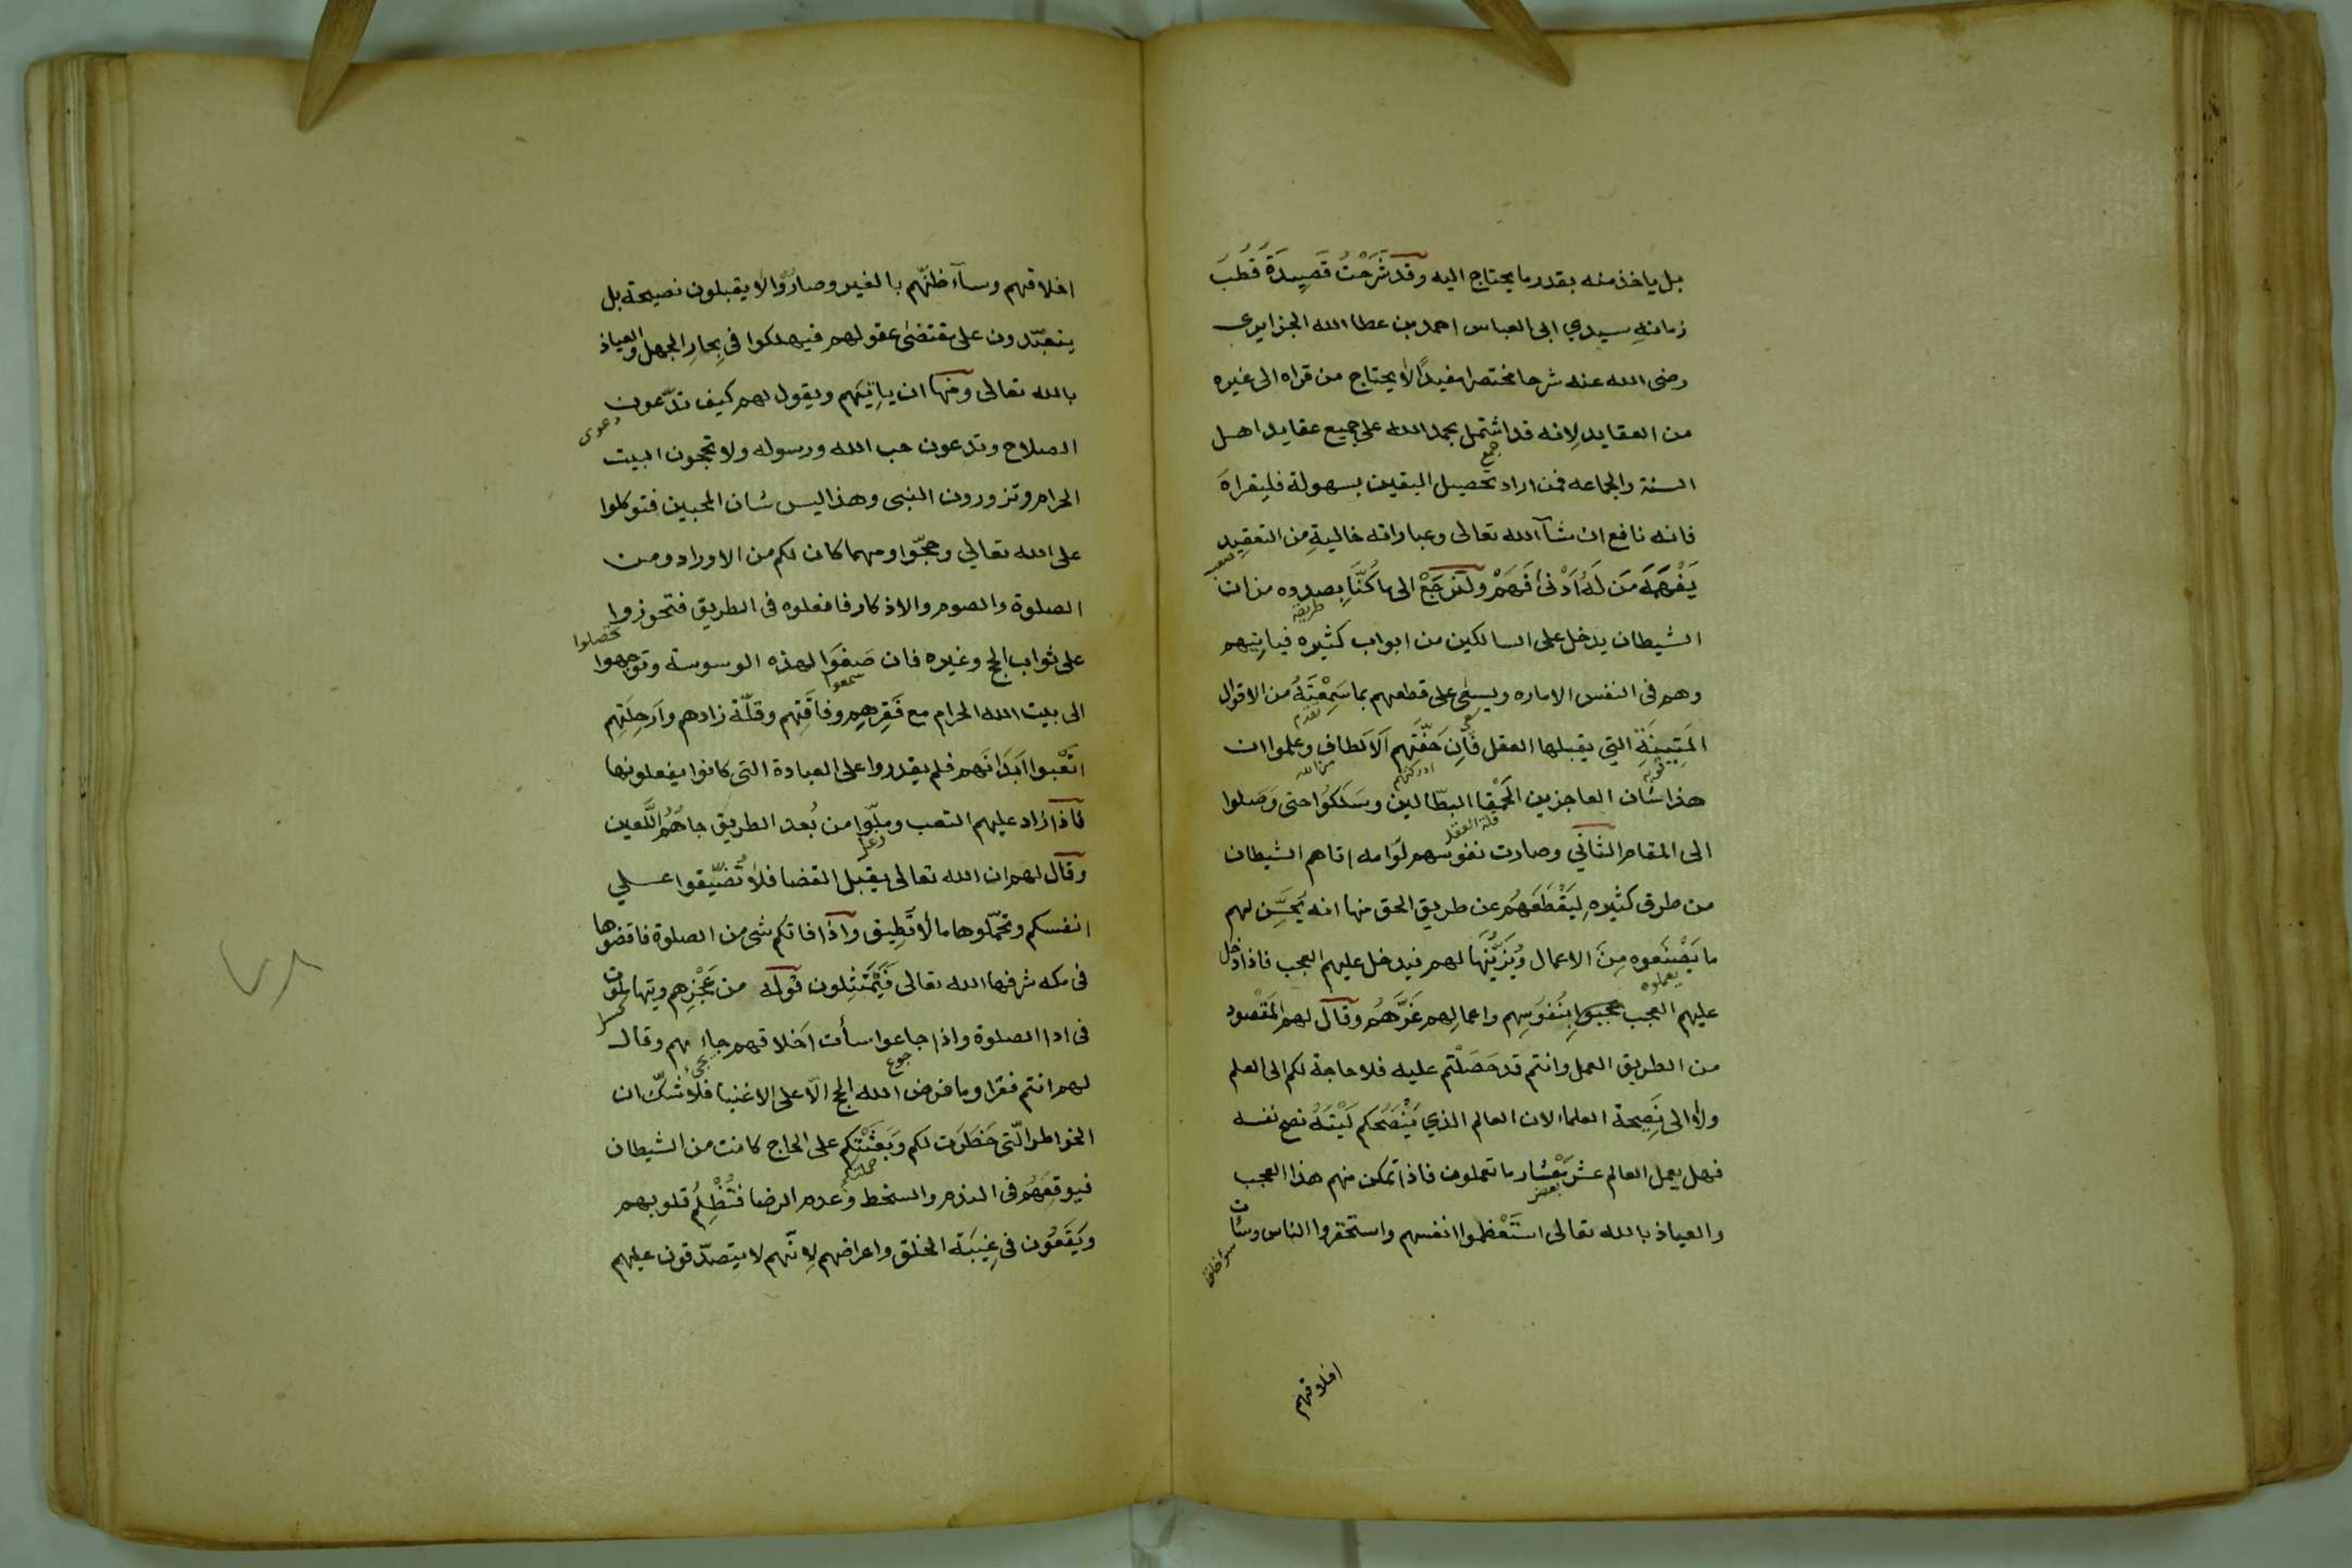 بل ياخذ منه بقدر ما يحتاج اليه وقد شَرَحْتُ قَصِيدَةَ قُطْبَ
زمانهِ سيدي ابى العباس احمد بن عطا الله الجزايرى
رضى الله عنه شرحا مختصرا مفيدًا لا يحتاج من قراه الى غيره
من العقايد لانه قد اشتمل بحمد الله على جميع عقايد اهل
السنة والجماعه فمن اراد تحصيل اليقين بسهولة فليقراهَ
جمع
فانه نافع ان شآ الله تعالى وعباراته خاليةِ من التعقِيد
يَفْهَمَهَ مَن لَهُ اَدْنىٰ فَهَمْ ولنرجَعْ الى ما كُنَّا بصدده من ان
الشيطان يدخل على السالكين من ابواب كثيره فياتيهم
طريقة
وهم فى النفس الاماره ويسعٰى على قطعهم بما سَمِعْتَهُ من الاقوال
المَتِينَةِ التي يقبلها العقل فَاِن حَفَّتَهم اَلاَلطاف وعلموا ان
تقدم
قويه
ادركتهم
من الله
هذا شان العاجزين الحَمْقا البطّالين وسَلَكوُا حتى وَصَلوا
قلة العقل
الى المقام الثانَي وصارت نفوسهم لوّامه اتاهم الشيطان
من طرق كثيره لِيَقْطَعَهُم عن طريق الحق منها انه يُحَسِّن لهم
ما يَصْنَعوه مِنَ الاعمال وُيَزَيِّنُهَا لهم فيدخل عليهم العجب فاذا دخل
يعملوه
عليهم العجب عجبوا بِنُفوسِهم واعمالِهم غَرَّهُم وقال لهم المَقْصود
من الطريق العمل وانتم قد حَصَلْتم عليه فلا حاجة لكم الى العلم
ولا الى نَصِيحة العلماء لان العالم الذي يَنْصَحُكم لَيْتَهُ نصح نفسه
فهل يعمل العالم عشر مِعْشار ما تعملون فاذا تمكن منهم هذا العجب
بعض
والعياذ بالله تعالى استَعْظموا انفسهم واستحقروا الناس وسات
اخلاقهم
اخلاقهم وسآء ظنّهم بالغير وصارُوا لا يقبلون نصيحة بل
يتعبّدون على مقتضىٰ عقولهم فيهلكوا فى بِحارِ الجهل والعياذ
بالله تعالى ومنها ان ياتِيَهم ويقول لهم كيف تدّعون
دعوى
الصلاح وتدعون حب الله ورسوله ولا تحجون البيت
الحرام وتزورون النبى وهذا ليس شان المحبين فتوكلوا
على الله تعالي وحجّوا ومهما كان لكم من الاوراد ومن
الصلوة والصوم والاذكار فافعلوه فى الطريق فتحوزوا
تحصلوا
على ثواب الحج وغيره فان صَغَوَا لهذه الوسوسة وتوجهوا
سمعوا
الى بيت الله الحرام مع فَقِرهِم وفاقَتِهم وقلّة زادهم واَرحِلَتِهِم
اتعْبوا اَبدَانَهم فلم يقدروا على العبادة التى كانوا يفعلونها
فاذا زاد عليهم التعب وملّوا من بُعد الطريق جاهُم اللَّعين
زعل
وقال لهم ان الله تعالى يقبل القضا فلا تُضَيِّيقوا علي
انفسكم وتحمّلوها ما لا تَطِيق واذا فاتكم شى من الصلوة فاقضوها
فى مكه شرفها الله تعالى فَيَمْتَثِلون قوله من عَجْزِهم ويتهاونون
كسل
فى ادا الصلوة واذا جاعوا سأت اَخلاقهم جاءهم وقال
جوع
لهم انتم فقرا وما فرض الله الحج الّا على الاغنيا فلا شكّ ان
الخواطر الّتى خَطَرَت لكم وَبَعَثَتْكم على الحاج كانت من الشيطان
حملتكم
فيوقعَهُم فى الندم والسخط وَعدم الرضا فتُظْلِمُ قلوبهم
ويَقَعُون فى غِيبَة الخلق واعراضهم لِانّهم لا يتصدّقون عليهم
٧٨